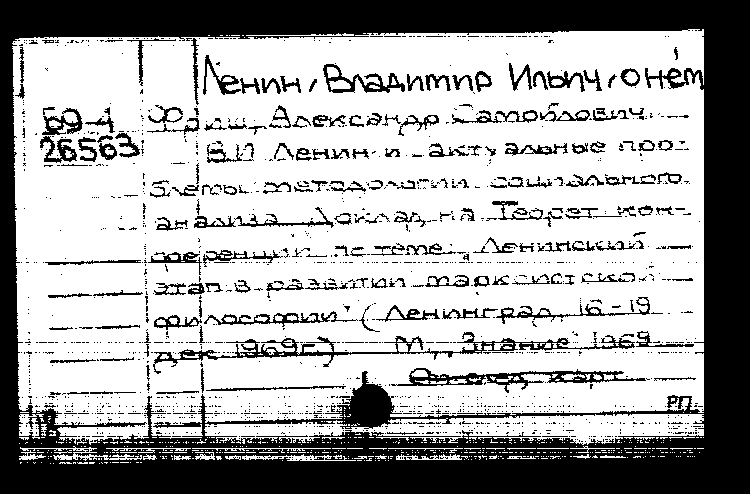 Ленин, Владимир Ильич, о нём
69-4 Фриш, Александр Самойлович.
26563 В.И. Ленин и актуальные про-
блемы методологии социального
анализа. Доклад на Теорет. кон-
ференции по теме: „Ленинский
этап в развитии марксистской
философии" (Ленинград, 16-19
дек. 1969г.) М., „Знание", 1969
См. след. карт.
РП.
18